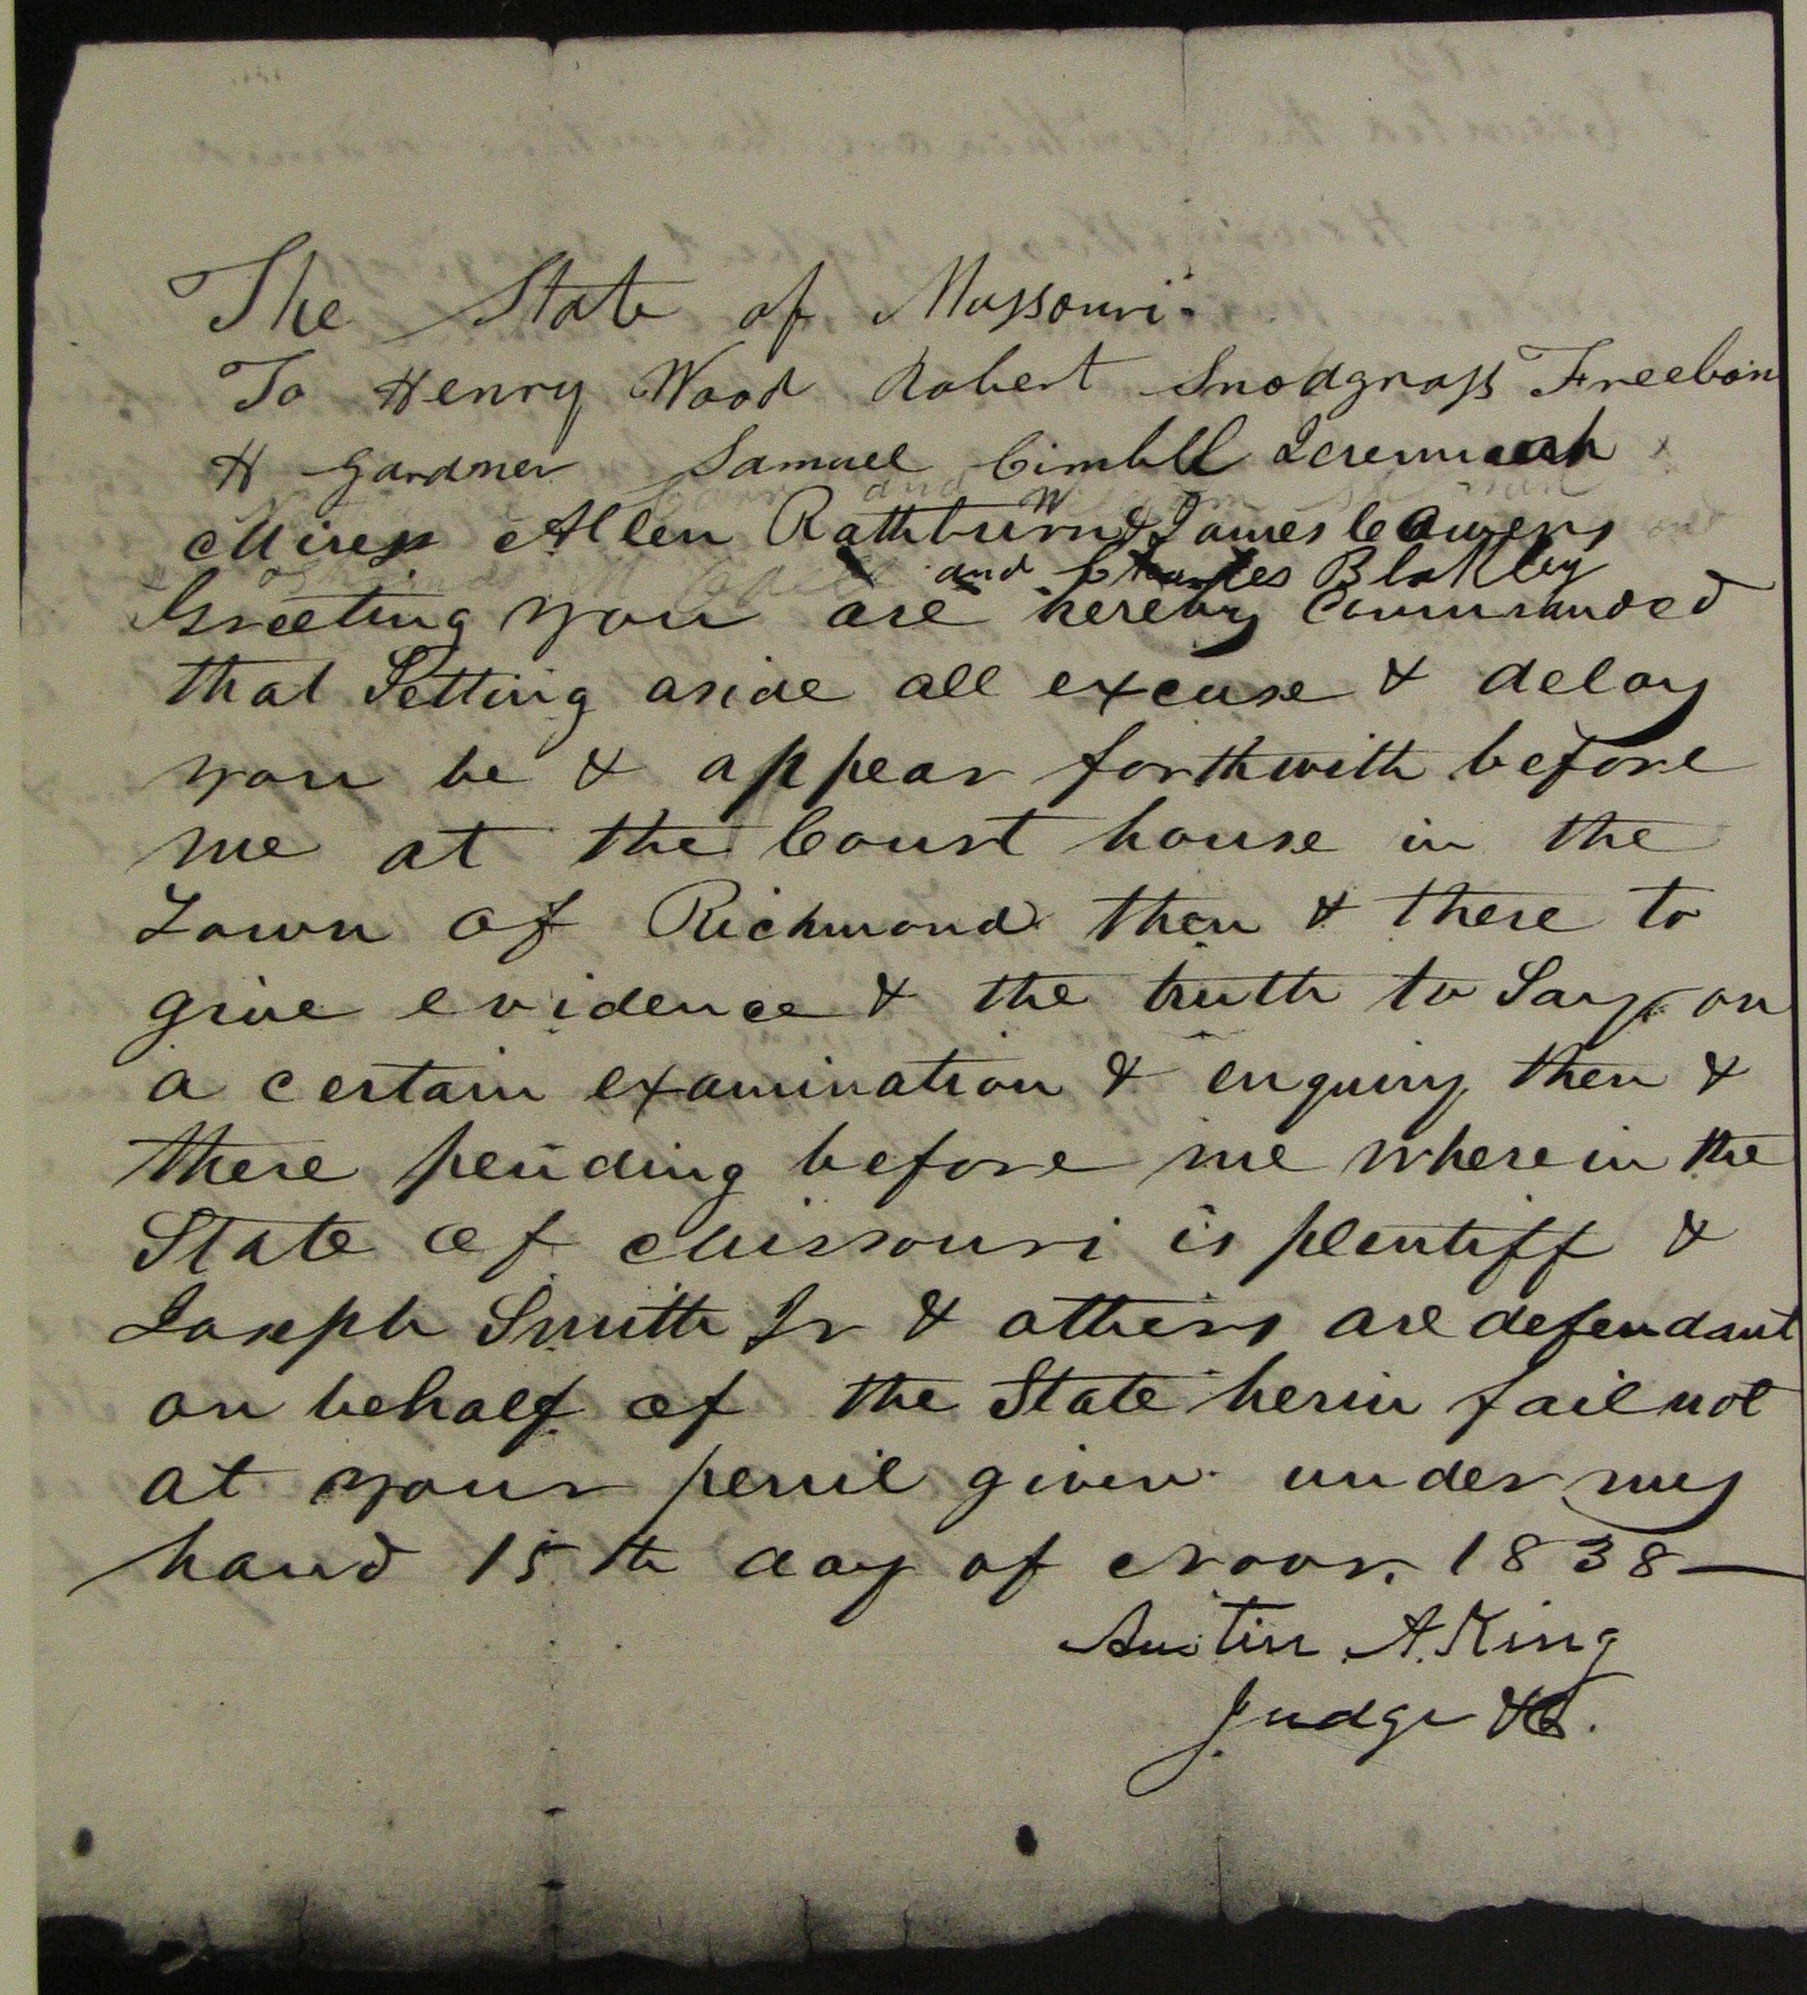 The State of Missouri.
To Henry Wood Robert Snodgrass Freebon
H Gardner Samuel Cimbll Jeremiah
Mires Allen Rathburn & James C Owens
and Charles Blakley
Greeting you are hereby Commanded
that Setting aside all excuse & delay
you be & appear forthwith before
me at the Court house in the
Town of Richmond then & there to
give evidence & the truth to Say on
a certain examination & enquiry then &
there pending before me wherein the
State of Missouri is plentiff &
Joseph Smith Jr & others are defendant
on behalf of the State herin fail not
at your peril given under my
hand 15th day of Novr. 1838—
Austin A. King
Judge &C.